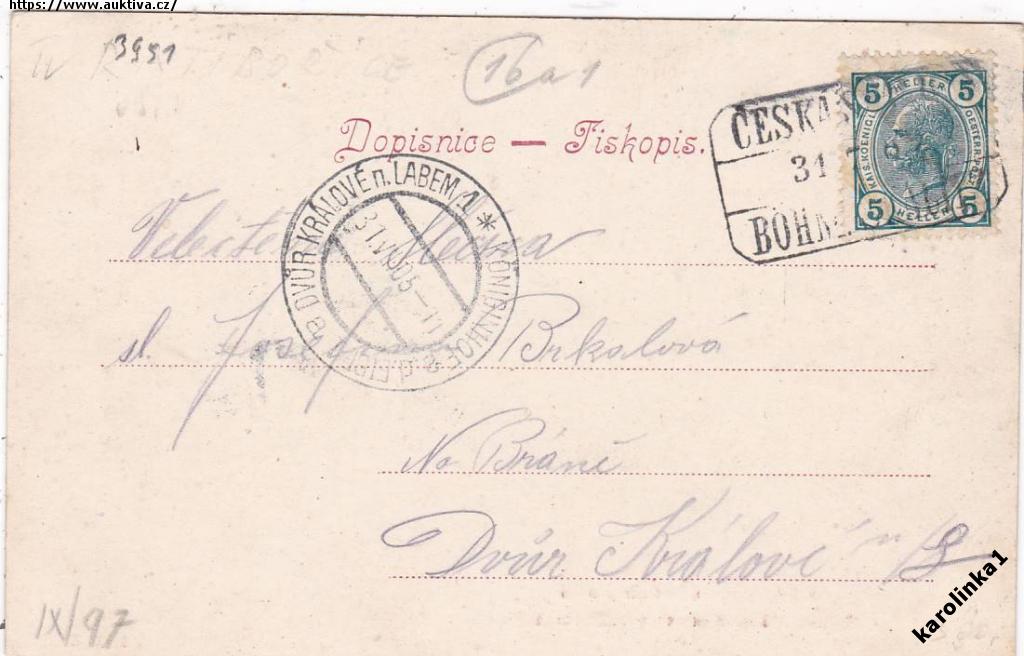 https://www.auktiva.cz/
3991
16a1
Dopisnice — Tiskopis.
ČESKÁ
31
BÖHM
5 HELLER 5
KAIS. KOENIGL. OESTERR. POST
5 HELLER 5
DVŮR KRÁLOVÉ n. LABEM 1 * KÖNIGINHOF a. d. ELBE
31 VII 05
Velectě Slečna
sl. Josefina Brkalová
Na Bráně
Dvůr Králové n/L
IX/97
karolinka1